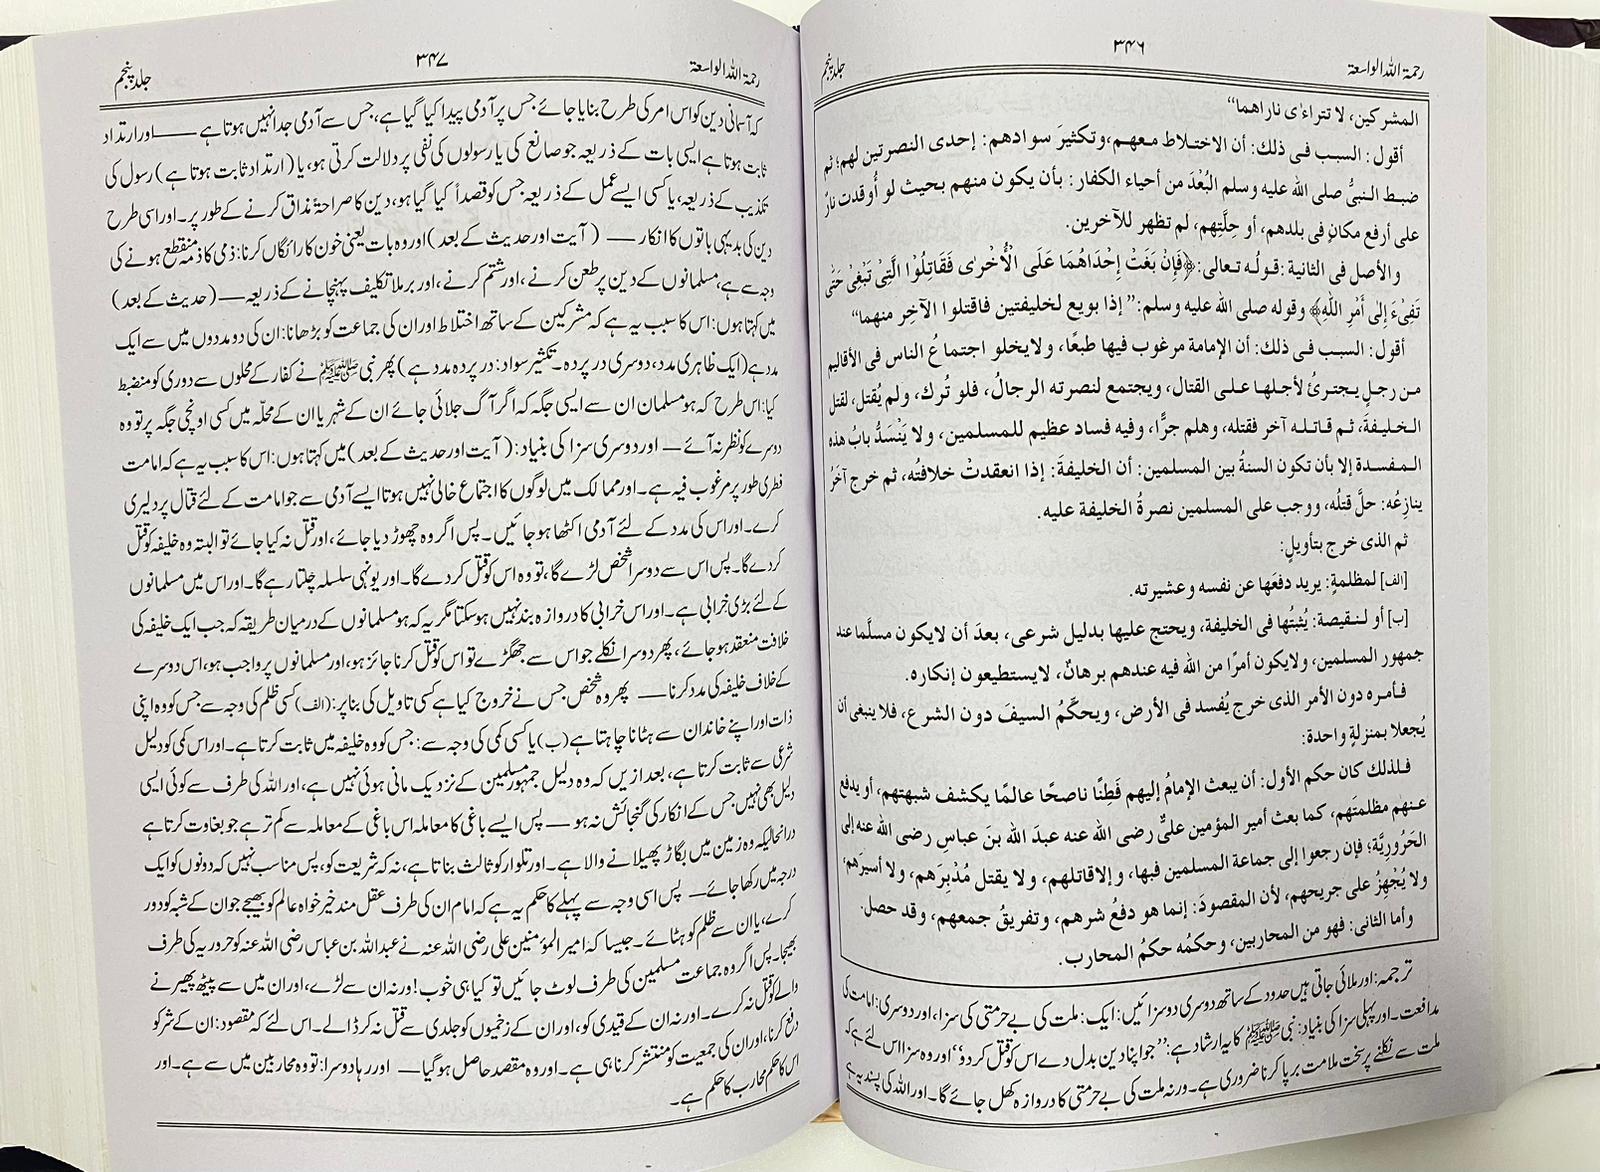 رحمة اللہ الواسعة
۳۴۶
جلد پنجم
المشركين، لا تتراءى ناراهما“
أقول: السبب فى ذلك: أن الاختلاط معهم، وتكثيرَ سوادهم: إحدى النصرتين لهم؛ ثم
ضبط النبىُّ صلى الله عليه وسلم البُعْدَ من أحياء الكفار: بأن يكون منهم بحيث لو أُوقدت نارٌ
على أرفع مكانٍ فى بلدهم، أو حِلَّتِهم، لم تظهر للآخرين.
والأصل فى الثانية: قولُه تعالى: ﴿فَإِنْ بَغَتْ إِحْدَاهُمَا عَلَى الْأُخْرٰى فَقَاتِلُوْا الَّتِىْ تَبْغِىْ حَتّٰى
تَفِىْءَ إِلٰى أَمْرِ اللّٰهِ﴾ وقوله صلى الله عليه وسلم: ”إذا بويع لخليفتين فاقتلوا الآخِر منهما“
أقول: السبب فى ذلك: أن الإمامة مرغوب فيها طبعًا، ولايخلو اجتماعُ الناس فى الأقاليم
من رجلٍ يجترئُ لأجلها على القتال، ويجتمع لنصرته الرجالُ، فلو تُرك، ولم يُقتل، لقتل
الخليفةَ، ثم قاتله آخر فقتله، وهلم جرًّا، وفيه فساد عظيم للمسلمين، ولا يَنْسَدُّ بابُ هذه
المفسدة إلا بأن تكون السنةُ بين المسلمين: أن الخليفةَ: إذا انعقدتْ خلافتُه، ثم خرج آخَرُ
ينازِعُه: حلَّ قتلُه، ووجب على المسلمين نصرةُ الخليفة عليه.
ثم الذى خرج بتأويلٍ:
[الف] لمظلمةٍ: يريد دفعَها عن نفسه وعشيرته.
[ب] أو لنقيصة: يُثبتُها فى الخليفة، ويحتج عليها بدليل شرعى، بعدَ أن لايكون مسلَّما عند
جمهور المسلمين، ولايكون أمرًا من الله فيه عندهم برهانٌ، لايستطيعون إنكاره.
فأمره دون الأمر الذى خرج يُفسد فى الأرض، ويحكِّمُ السيفَ دون الشرع، فلا ينبغى أن
يُجعلا بمنزلةٍ واحدة:
فلذلك كان حكم الأول: أن يبعث الإمامُ إليهم فَطِنًا ناصحًا عالمًا يكشف شبهتهم، أو يدفع
عنهم مظلمتَهم، كما بعث أمير المؤمنين علىٌّ رضى الله عنه عبدَ الله بنَ عباس رضى الله عنه إلى
الحَرُورِيَّة؛ فإن رجعوا إلى جماعة المسلمين فبها، وإلا قاتلهم، ولا يقتل مُدْبِرَهم، ولا أسيرَهم
ولا يُجْهِزُ على جريحهم، لأن المقصودَ: إنما هو دفعُ شرهم، وتفريقُ جمعهم، وقد حصل.
وأما الثانى: فهو من المحاربين، وحكمُه حكمُ المحارب.
ترجمہ: اور ملائی جاتی ہیں حدود کے ساتھ دوسری دو سزائیں: ایک: ملت کی بے حرمتی کی سزا، اور دوسری: امامت کی
مدافعت۔ اور پہلی سزا کی بنیاد: نبی ﷺ کا یہ ارشاد ہے: ”جو اپنا دین بدل دے اس کو قتل کر دو“ اور وہ سزا اس لئے ہے کہ
ملت سے نکلنے پر سخت ملامت برپا کرنا ضروری ہے۔ ورنہ ملت کی بے حرمتی کا دروازہ کھل جائے گا۔ اور اللہ کی پسند یہ ہے
رحمة اللہ الواسعة
۳۴۷
جلد پنجم
کہ آسمانی دین کو اس امر کی طرح بنایا جائے جس پر آدمی پیدا کیا گیا ہے، جس سے آدمی جدا نہیں ہوتا ہے —— اور ارتداد
ثابت ہوتا ہے ایسی بات کے ذریعہ جو صانع کی یا رسولوں کی نفی پر دلالت کرتی ہو، یا (ارتداد ثابت ہوتا ہے) رسول کی
تکذیب کے ذریعہ، یا کسی ایسے عمل کے ذریعہ جس کو قصداً کیا گیا ہو، دین کا صراحۃً مذاق کرنے کے طور پر۔ اور اسی طرح
دین کی بدیہی باتوں کا انکار —— (آیت اور حدیث کے بعد) اور وہ بات یعنی خون کا رائگاں کرنا: ذمی کا ذمہ منقطع ہونے کی
وجہ سے ہے، مسلمانوں کے دین پر طعن کرنے، اور شتم کرنے، اور برملا تکلیف پہنچانے کے ذریعہ —— (حدیث کے بعد)
میں کہتا ہوں: اس کا سبب یہ ہے کہ مشرکین کے ساتھ اختلاط اور ان کی جماعت کو بڑھانا: ان کی دو مددوں میں سے ایک
مدد ہے (ایک ظاہری مدد، دوسری در پردہ۔ تکثیر سواد: در پردہ مدد ہے) پھر نبی ﷺ نے کفار کے محلوں سے دوری کو منضبط
کیا: اس طرح کہ ہو مسلمان ان سے ایسی جگہ کہ اگر آگ جلائی جائے ان کے شہر یا ان کے محلّہ میں کسی اونچی جگہ پر تو وہ
دوسرے کو نظر نہ آئے —— اور دوسری سزا کی بنیاد: (آیت اور حدیث کے بعد) میں کہتا ہوں: اس کا سبب یہ ہے کہ امامت
فطری طور پر مرغوب فیہ ہے۔ اور ممالک میں لوگوں کا اجتماع خالی نہیں ہوتا ایسے آدمی سے جو امامت کے لئے قتال پر دلیری
کرے۔ اور اس کی مدد کے لئے آدمی اکٹھا ہو جائیں۔ پس اگر وہ چھوڑ دیا جائے، اور قتل نہ کیا جائے تو البتہ وہ خلیفہ کو قتل
کر دے گا۔ پس اس سے دوسرا شخص لڑے گا، تو وہ اس کو قتل کر دے گا۔ اور یونہی سلسلہ چلتا رہے گا۔ اور اس میں مسلمانوں
کے لئے بڑی خرابی ہے۔ اور اس خرابی کا دروازہ بند نہیں ہوسکتا مگر یہ کہ ہو مسلمانوں کے درمیان طریقہ کہ جب ایک خلیفہ کی
خلافت منعقد ہو جائے، پھر دوسرا نکلے جو اس سے جھگڑے تو اس کو قتل کرنا جائز ہو، اور مسلمانوں پر واجب ہو، اس دوسرے
کے خلاف خلیفہ کی مدد کرنا —— پھر وہ شخص جس نے خروج کیا ہے کسی تاویل کی بنا پر: (الف) کسی ظلم کی وجہ سے جس کو وہ اپنی
ذات اور اپنے خاندان سے ہٹانا چاہتا ہے (ب) یا کسی کمی کی وجہ سے: جس کو وہ خلیفہ میں ثابت کرتا ہے۔ اور اس کمی کو دلیل
شرعی سے ثابت کرتا ہے، بعد ازیں کہ وہ دلیل جمہور مسلمین کے نزدیک مانی ہوئی نہیں ہے، اور اللہ کی طرف سے کوئی ایسی
دلیل بھی نہیں جس کے انکار کی گنجائش نہ ہو —— پس ایسے باغی کا معاملہ اس باغی کے معاملہ سے کم تر ہے جو بغاوت کرتا ہے
درانحالیکہ وہ زمین میں بگاڑ پھیلانے والا ہے۔ اور تلوار کو ثالث بناتا ہے، نہ کہ شریعت کو، پس مناسب نہیں کہ دونوں کو ایک
درجہ میں رکھا جائے —— پس اسی وجہ سے پہلے کا حکم یہ ہے کہ امام ان کی طرف عقل مند خیر خواہ عالم کو بھیجے جو ان کے شبہ کو دور
کرے، یا ان سے ظلم کو ہٹائے۔ جیسا کہ امیر المؤمنین علی رضی اللہ عنہ نے عبداللہ بن عباس رضی اللہ عنہ کو حروریہ کی طرف
بھیجا۔ پس اگر وہ جماعت مسلمین کی طرف لوٹ جائیں تو کیا ہی خوب! ورنہ ان سے لڑے، اور ان میں سے پیٹھ پھیرنے
والے کو قتل نہ کرے۔ اور نہ ان کے قیدی کو، اور ان کے زخمیوں کو جلدی سے قتل نہ کر ڈالے۔ اس لئے کہ مقصود: ان کے شر کو
دفع کرنا، اور ان کی جمعیت کو منتشر کرنا ہی ہے۔ اور وہ مقصد حاصل ہو گیا —— اور رہا دوسرا: تو وہ محاربین میں سے ہے۔ اور
اس کا حکم محارب کا حکم ہے۔